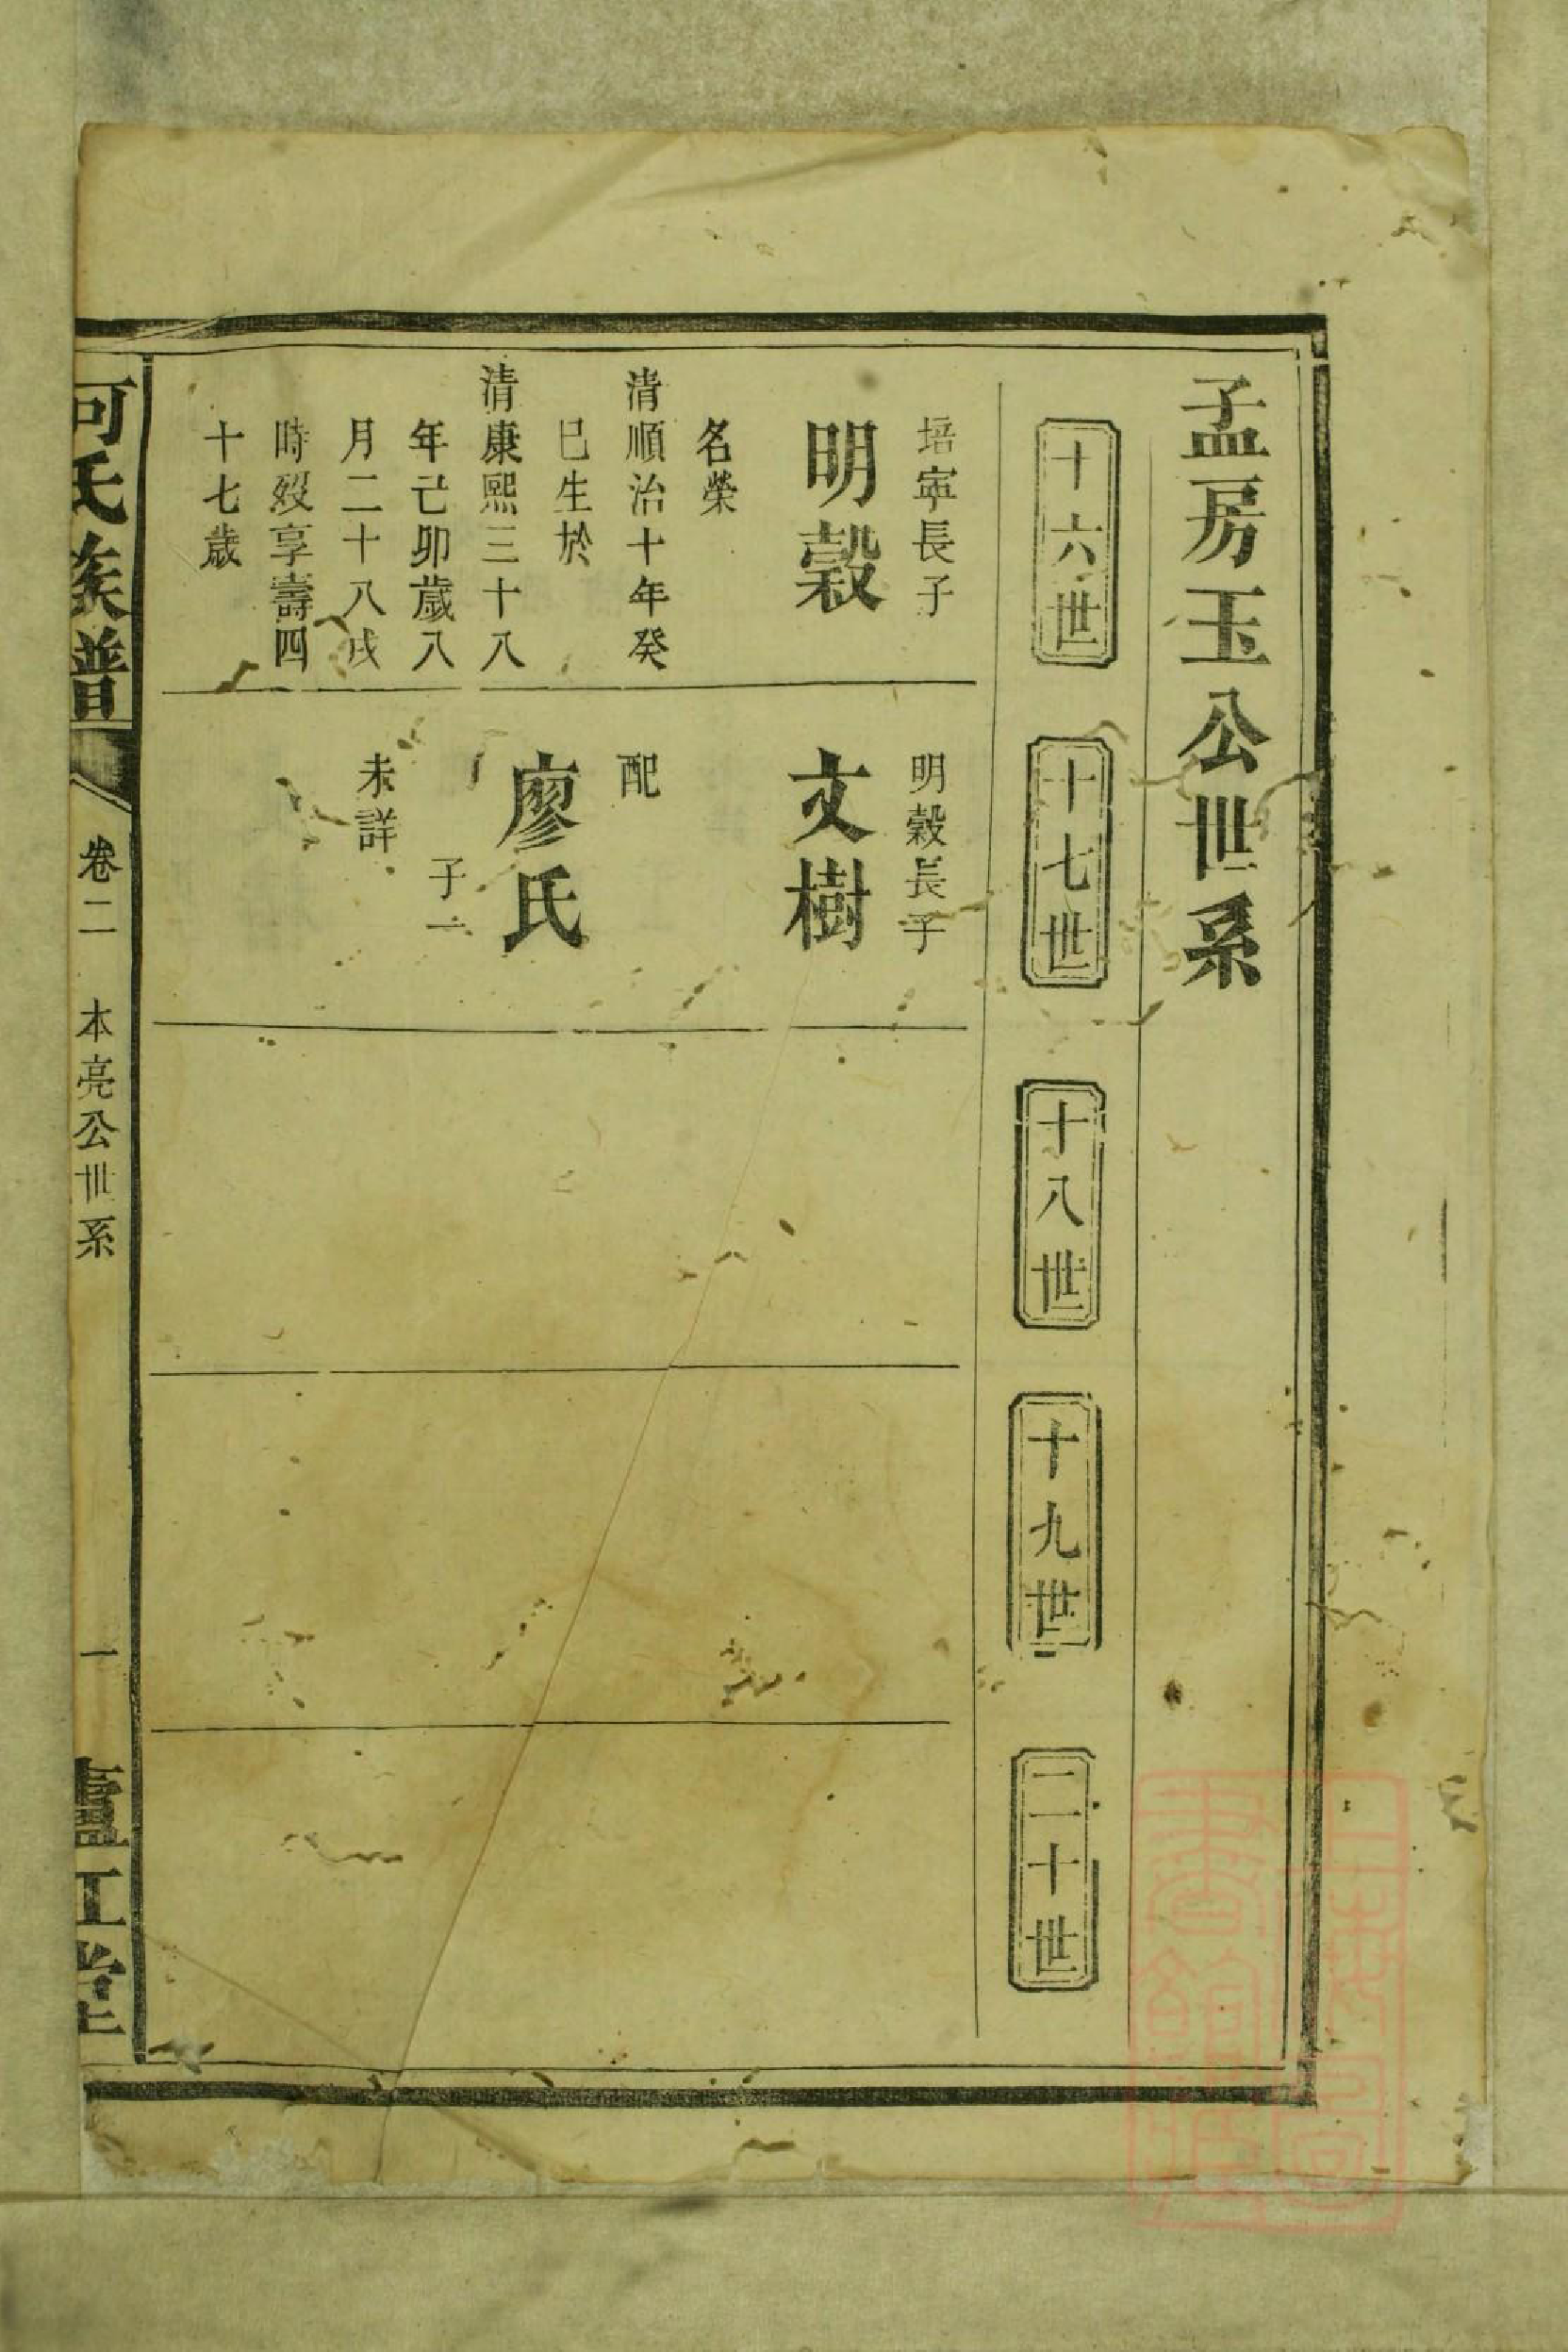 孟房玉公世系
十六世
十七世
十八世
十九世
二十世
培寧長子
明穀
名榮
清順治十年癸
巳生於
清康熙三十八
年己卯歲八
月二十八戌
時歿享壽四
十七歲
明穀長子
文樹
配
廖氏
子一
未詳
何氏族譜
卷二
本亮公世系
一
廬江堂